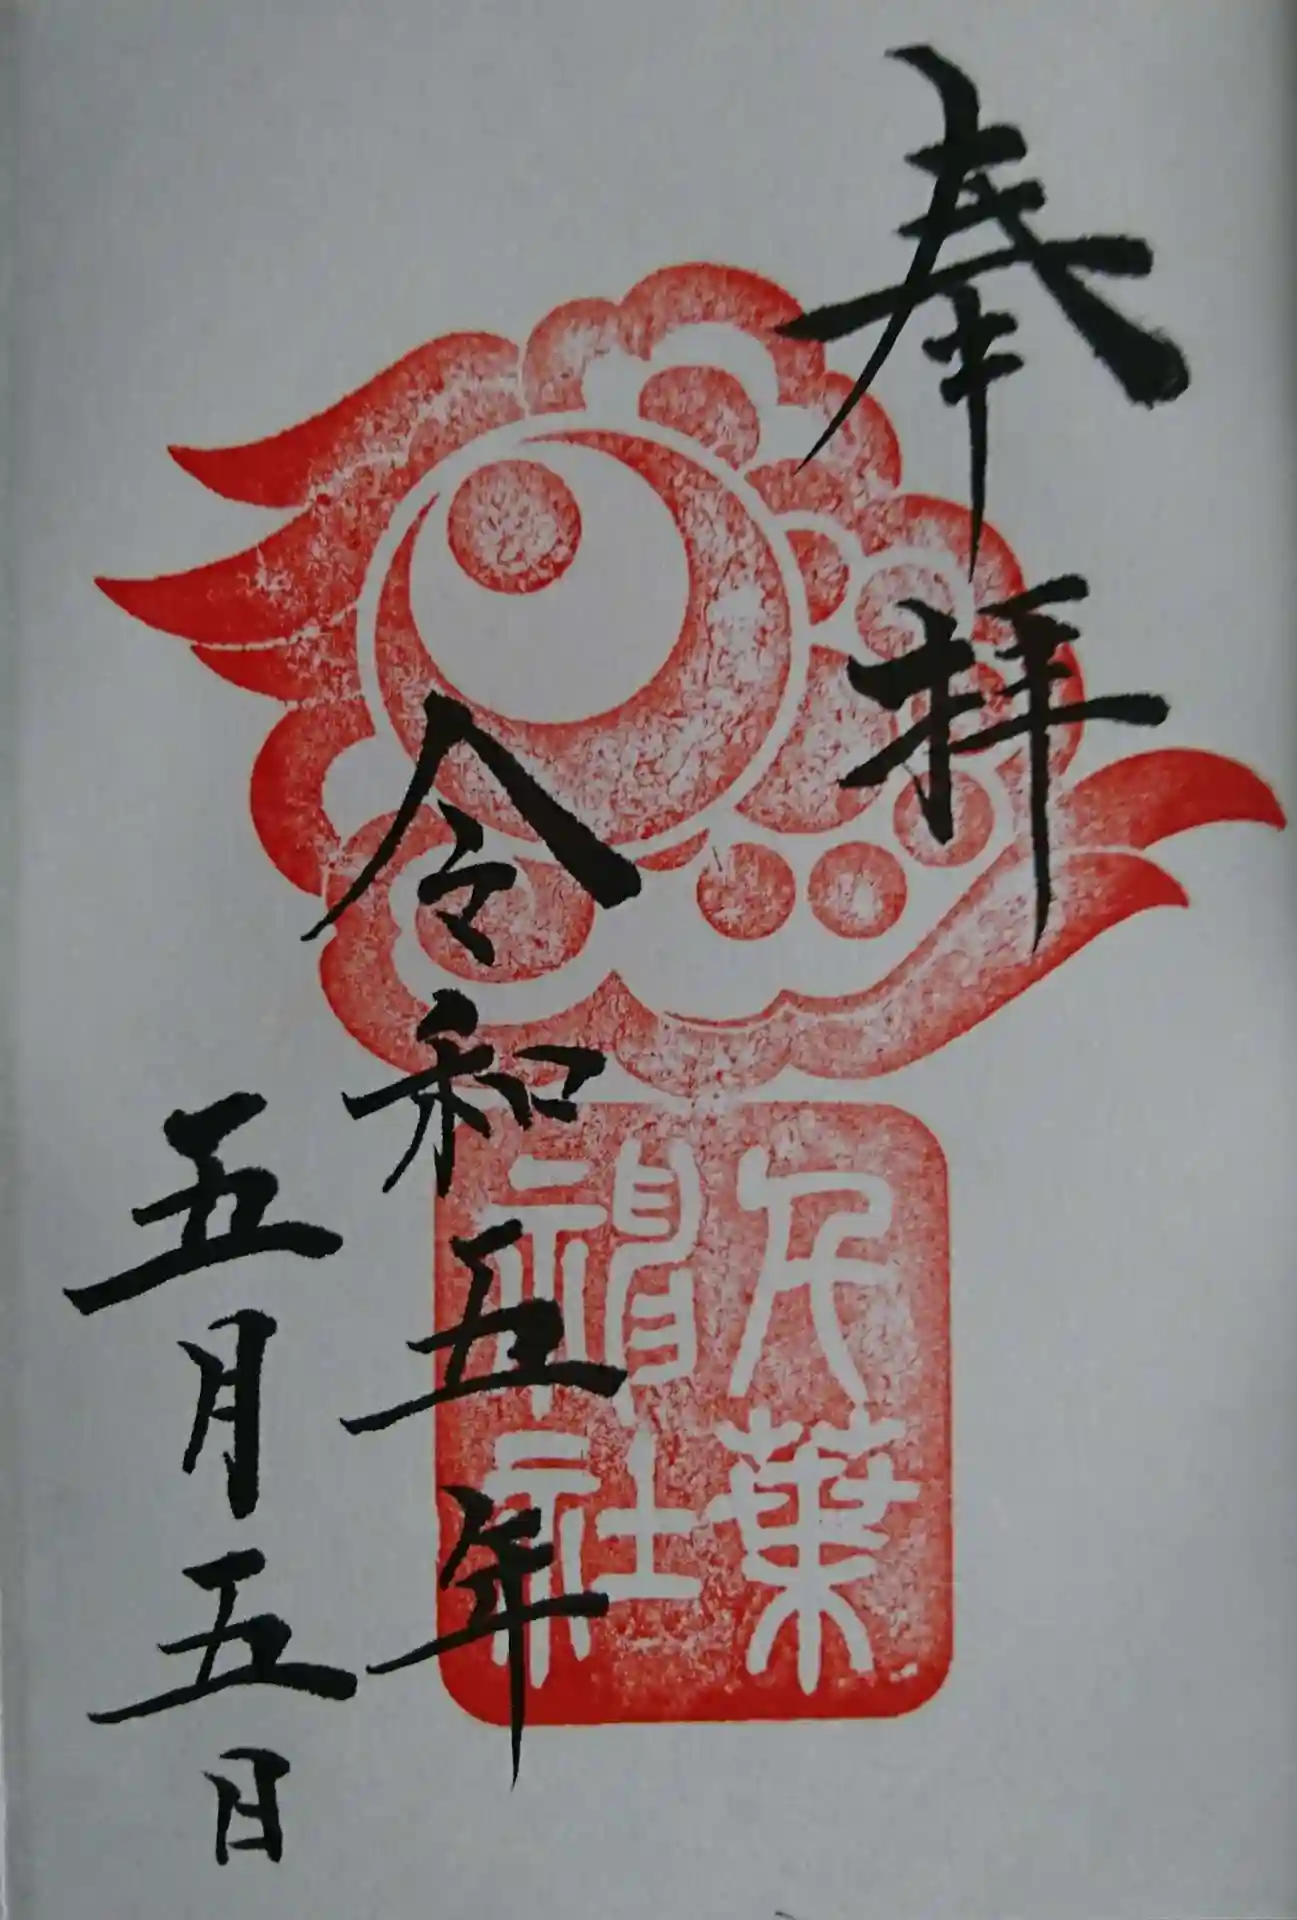 奉拝
千葉
神社
令和五年
五月五日